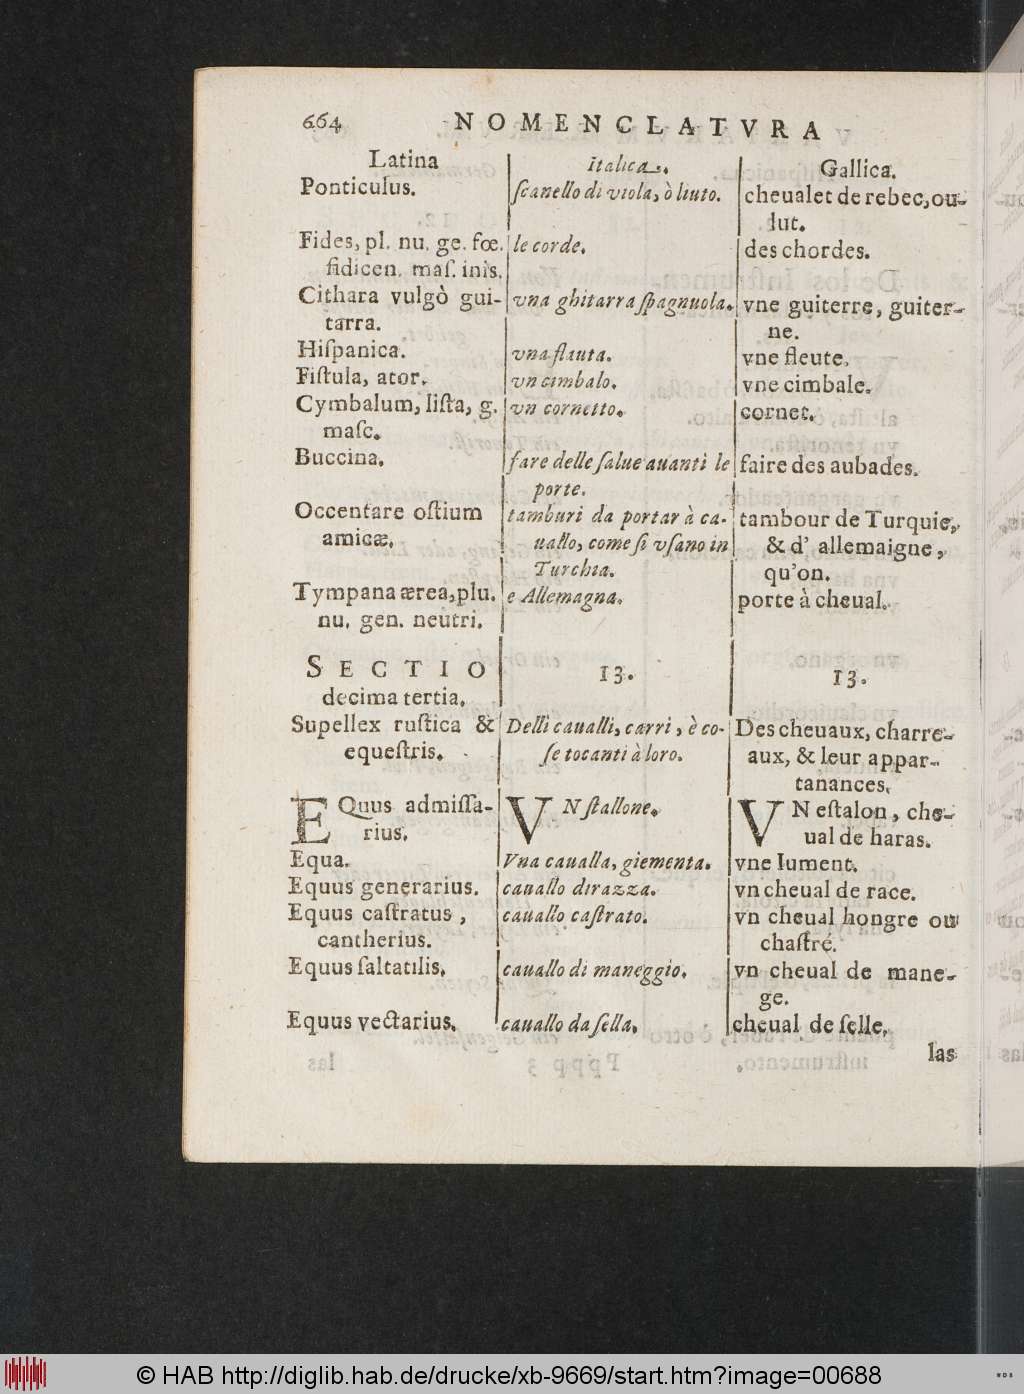 664 NOMENCLATVRA
Latina
Ponticulus.
Fides, pl. nu. ge. fœ.
fidicen. maſ. inis.
Cithara vulgò gui-
tarra.
Hiſpanica.
Fiſtula, ator.
Cymbalum, liſta, g.
maſc.
Buccina.
Occentare oſtium
amicæ.
Tympana ærea, plu.
nu. gen. neutri.
SECTIO
decima tertia.
Supellex ruſtica &
equeſtris.
EQuus admiſſa-
rius.
Equa.
Equus generarius.
Equus caſtratus,
cantherius.
Equus ſaltatilis.
Equus vectarius.
Italica.
ſcanello di viola, ò liuto.
le corde.
vna ghitarra ſpagnuola.
vna flauta.
vn cimbalo.
vn cornetto.
fare delle ſalue auanti le
porte.
tamburi da portar à ca-
uallo, come ſi vſano in
Turchia.
e Allemagna.
13.
Delli caualli, carri, è co-
ſe tocanti à loro.
VN ſtallone.
Vna caualla, giementa.
cauallo di razza.
cauallo caſtrato.
cauallo di maneggio.
cauallo da ſella.
Gallica.
cheualet de rebec, ou
lut.
des chordes.
vne guiterre, guiter-
ne.
vne fleute.
vne cimbale.
cornet.
faire des aubades.
tambour de Turquie,
& d' allemaigne,
qu'on.
porte à cheual.
13.
Des cheuaux, charre-
aux, & leur appar-
tanances.
VN eſtalon, che-
ual de haras.
vne Iument.
vn cheual de race.
vn cheual hongre ou
chaſtré.
vn cheual de mane-
ge.
cheual de ſelle.
las
© HAB http://diglib.hab.de/drucke/xb-9669/start.htm?image=00688